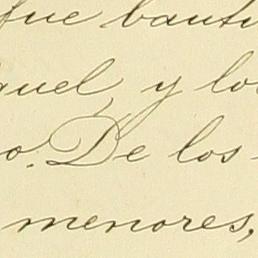 que bauti
quel y los
o. De los
menores,